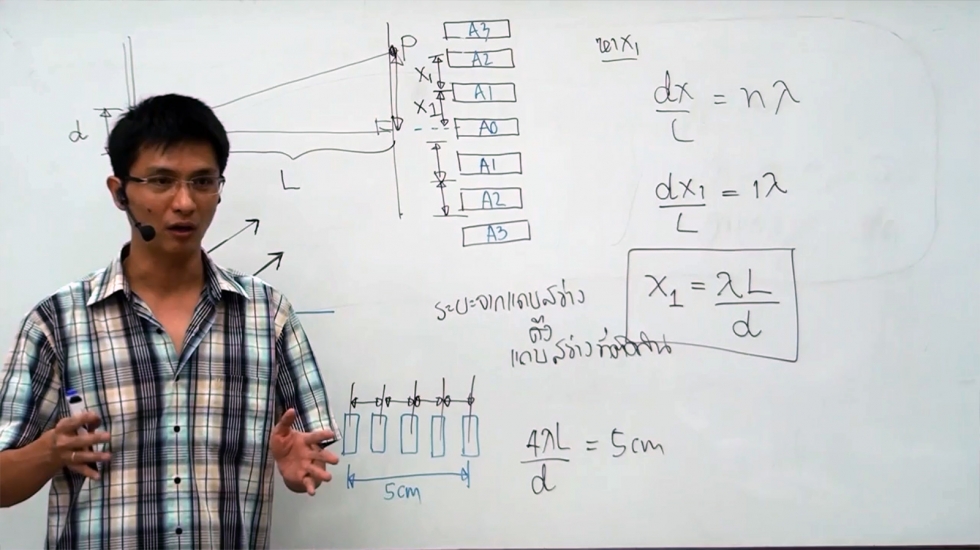 d
P
x₁
x₁
L
A3
A2
A1
A0
A1
A2
A3
หา x₁
dx/L = nλ
dx₁/L = 1λ
x₁ = λL/d
ระยะจากแถบสว่าง
ถึง
แถบสว่างที่ติดกัน
5cm
4λL/d = 5cm